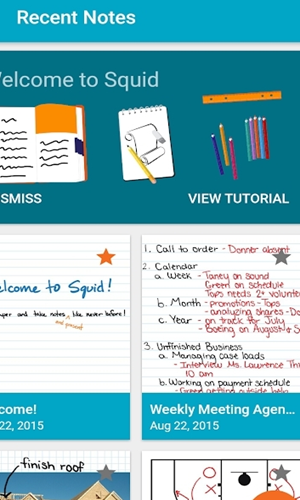 Recent Notes
elcome to Squid
SMISS
VIEW TUTORIAL
elcome to Squid!
ayer and take notes like never before!
and present
1. Call to order - Donner absent
2. Calendar
a. Week - Taney on sound
Green on schedule
Tops needs 2+ volunte
b. Month - promotions - Tops
- analyzing shares - Do
c. Year - on track for July
- Boeing on August & S
3. Unfinished Business
a. Managing case loads
- Interview Ms. Lawrence Th
10 am
b. Working on payment schedule
- Green getting outside help
come!
22, 2015
Weekly Meeting Agen...
Aug 22, 2015
finish roof